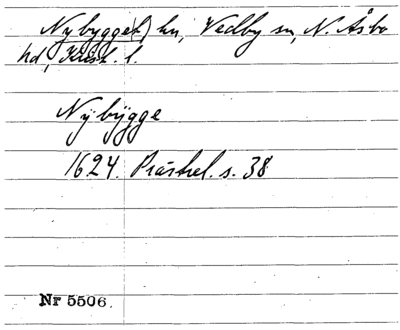 Nybygge(t) hn, Vedby sn, N. Åsbo
hd, Krist. l.
Nÿbÿgge
1624. Prästrel. s. 38
Nr 5506